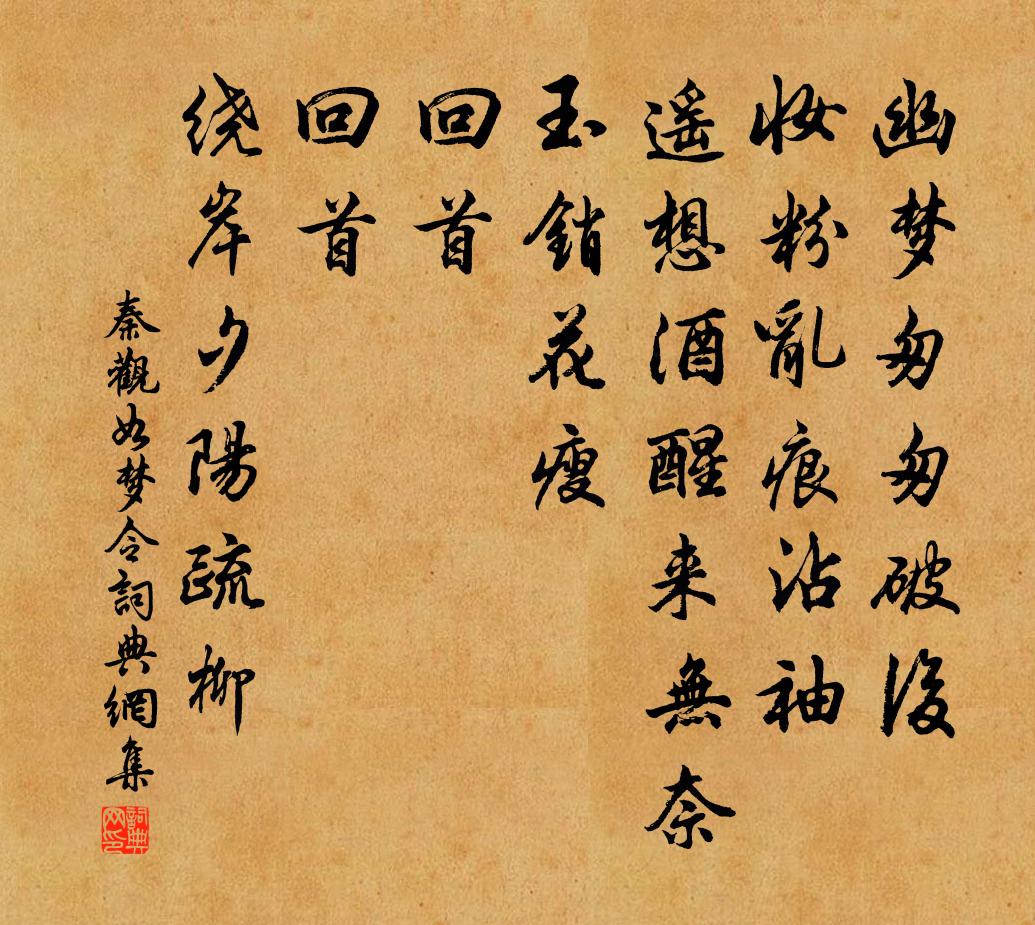 幽梦匆匆破後
妆粉亂痕沾袖
遥想酒醒来無奈
玉銷花瘦
回首
回首
绕岸夕陽疏柳
秦觀如梦令詞典網集
詞典网印